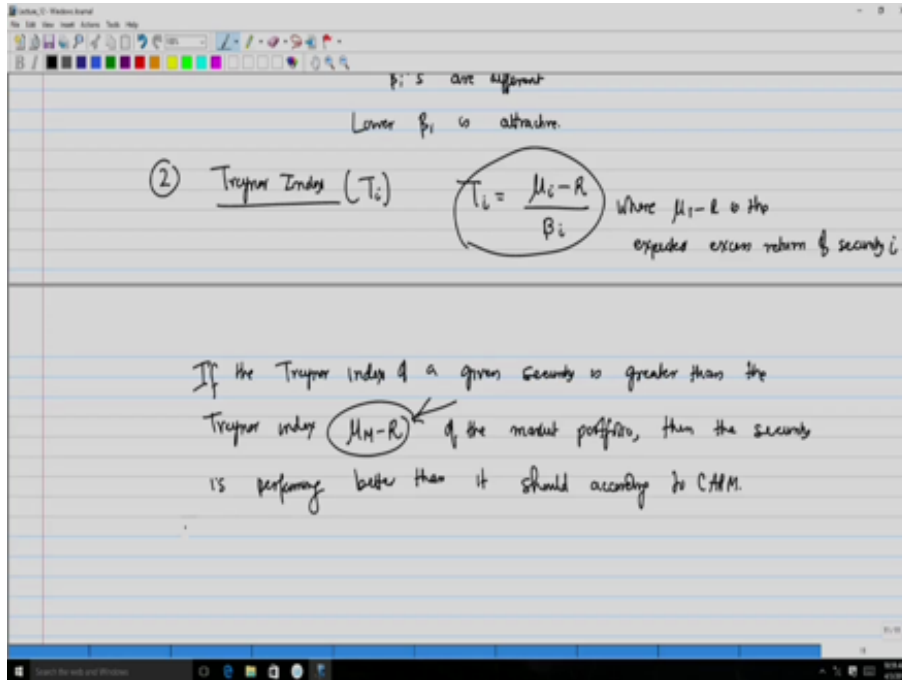 Lecture_12 - Windows Journal
File Edit View Insert Actions Tools Help
βi's are different
Lower βi is attractive.
② Treynor Index (Ti) Ti = μi-R / βi where μi-R is the
expected excess return of security i
If the Treynor index of a given security is greater than the
Treynor index (μM-R) of the market portfolio, then the security
is performing better than it should according to CAPM.
Search the web and Windows